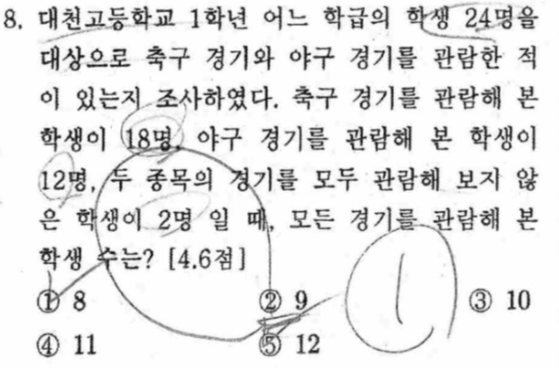 8. 대천고등학교 1학년 어느 학급의 학생 24명을
대상으로 축구 경기와 야구 경기를 관람한 적
이 있는지 조사하였다. 축구 경기를 관람해 본
학생이 18명, 야구 경기를 관람해 본 학생이
12명, 두 종목의 경기를 모두 관람해 보지 않
은 학생이 2명 일 때, 모든 경기를 관람해 본
학생 수는? [4.6점]
① 8 ② 9 ③ 10
④ 11 ⑤ 12